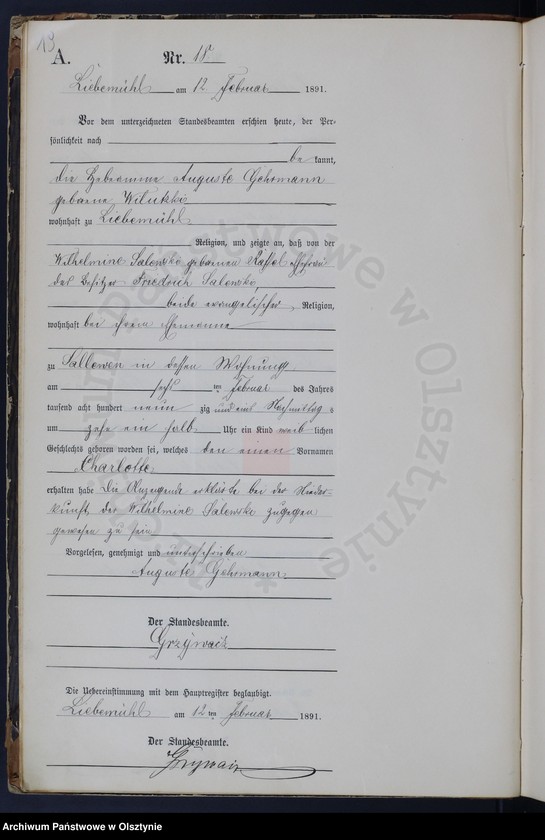 19
A. Nr. 18
Liebemühl am 12 Februar 1891.
Vor dem unterzeichneten Standesbeamten erschien heute, der Per-
sönlichkeit nach
be kannt,
die Hebeamme Auguste Gehrmann
geborne
wohnhaft zu Liebemühl
Religion, und zeigte an, daß von der
Wilhelmine Salewski gebornen Ehefrau
des Besitzer Friedrich Salewski,
beide evangelischer Religion,
wohnhaft bei ihrem Ehemanne
zu Sallewen in dessen Wohnung
am ten Februar des Jahres
tausend acht hundert neun zig und eins Nachmittag s
um zehn ein halb Uhr ein Kind weib lichen
Geschlechts geboren worden sei, welches den einen Vornamen
Charlotte
erhalten habe Die Anzeigende erklärte bei der Nieder-
kunft der Wilhelmine Salewski zugegen
gewesen zu sein
Vorgelesen, genehmigt und unterschrieben
Auguste Gehrmann
Der Standesbeamte.
Grzywatz
Die Uebereinstimmung mit dem Hauptregister beglaubigt.
Liebemühl am 12 ten Februar 1891.
Der Standesbeamte.
Archiwum Państwowe w Olsztynie
* Archiwum Państwowe w Olsztynie